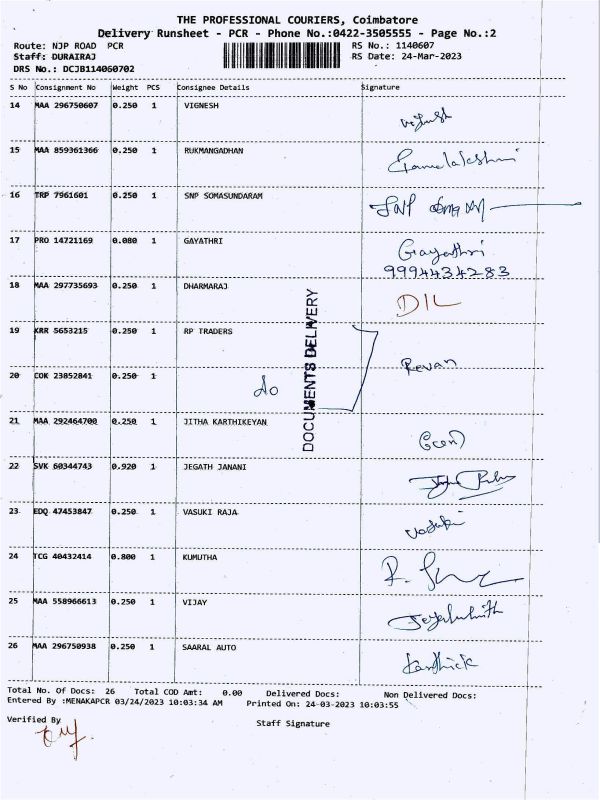 THE PROFESSIONAL COURIERS, Coimbatore
Delivery Runsheet - PCR - Phone No.:0422-3505555 - Page No.:2
Route: NJP ROAD PCR RS No.: 1140607
Staff: DURAIRAJ RS Date: 24-Mar-2023
DRS No.: DCJB114060702
S No Consignment No Weight PCS Consignee Details Signature
14 MAA 296750607 0.250 1 VIGNESH
15 MAA 859361366 0.250 1 RUKMANGADHAN
16 TRP 7961601 0.250 1 SNP SOMASUNDARAM SNP
17 PRO 14721169 0.080 1 GAYATHRI Gayathri
9994434283
18 MAA 297735693 0.250 1 DHARMARAJ DIL
19 KRR 5653215 0.250 1 RP TRADERS
Revan
20 COK 23852841 0.250 1 do
DOCUMENTS DELIVERY
21 MAA 292464700 0.250 1 JITHA KARTHIKEYAN
22 SVK 60344743 0.920 1 JEGATH JANANI
23 EDQ 47453847 0.250 1 VASUKI RAJA Vasuki
24 TCG 40432414 0.800 1 KUMUTHA
25 MAA 558966613 0.250 1 VIJAY
26 MAA 296750938 0.250 1 SAARAL AUTO Karthick
Total No. Of Docs: 26 Total COD Amt: 0.00 Delivered Docs: Non Delivered Docs:
Entered By :MENAKAPCR 03/24/2023 10:03:34 AM Printed On: 24-03-2023 10:03:55
Verified By Staff Signature